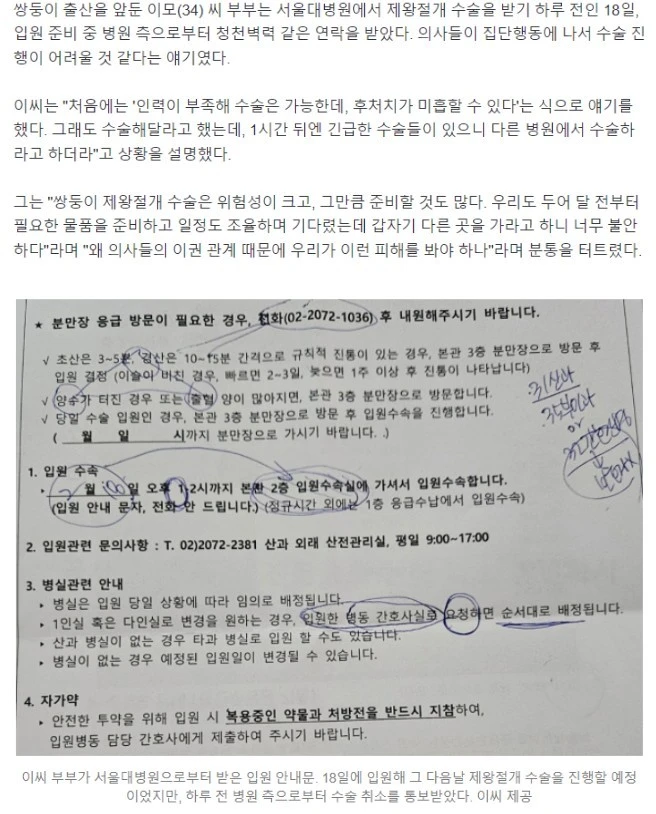 쌍둥이 출산을 앞둔 이모(34) 씨 부부는 서울대병원에서 제왕절개 수술을 받기 하루 전인 18일,
입원 준비 중 병원 측으로부터 청천벽력 같은 연락을 받았다. 의사들이 집단행동에 나서 수술 진
행이 어려울 것 같다는 얘기였다.
이씨는 "처음에는 '인력이 부족해 수술은 가능한데, 후처치가 미흡할 수 있다'는 식으로 얘기를
했다. 그래도 수술해달라고 했는데, 1시간 뒤엔 긴급한 수술들이 있으니 다른 병원에서 수술하
라고 하더라"고 상황을 설명했다.
그는 "쌍둥이 제왕절개 수술은 위험성이 크고, 그만큼 준비할 것도 많다. 우리도 두어 달 전부터
필요한 물품을 준비하고 일정도 조율하며 기다렸는데 갑자기 다른 곳을 가라고 하니 너무 불안
하다"라며 "왜 의사들의 이권 관계 때문에 우리가 이런 피해를 봐야 하나"라며 분통을 터트렸다.
★ 분만장 응급 방문이 필요한 경우, 전화(02-2072-1036) 후 내원해주시기 바랍니다.
√ 초산은 3~5분, 경산은 10~15분 간격으로 규칙적 진통이 있는 경우, 본관 3층 분만장으로 방문 후
입원 결정 (이슬이 비친 경우, 빠르면 2~3일, 늦으면 1주 이상 후 진통이 나타납니다)
√ 양수가 터진 경우 또는 출혈 양이 많아지면, 본관 3층 분만장으로 방문합니다.
√ 당일 수술 입원인 경우, 본관 3층 분만장으로 방문 후 입원수속을 진행합니다.
( 월 일 시까지 분만장으로 가시기 바랍니다. )
1. 입원 수속
▸ 월 일 오후 1-2시까지 본관 2층 입원수속실에 가셔서 입원수속합니다.
(입원 안내 문자, 전화 안 드립니다.) (정규시간 외에는 1층 응급수납에서 입원수속)
2. 입원관련 문의사항 : T. 02)2072-2381 산과 외래 산전관리실, 평일 9:00~17:00
3. 병실관련 안내
▸ 병실은 입원 당일 상황에 따라 임의로 배정됩니다.
▸ 1인실 혹은 다인실로 변경을 원하는 경우, 입원한 병동 간호사실로 요청하면 순서대로 배정됩니다.
▸ 산과 병실이 없는 경우 타과 병실로 입원 할 수도 있습니다.
▸ 병실이 없는 경우 예정된 입원일이 변경될 수 있습니다.
4. 자가약
▸ 안전한 투약을 위해 입원 시 복용중인 약물과 처방전을 반드시 지참하여,
입원병동 담당 간호사에게 제출하여 주시기 바랍니다.
이씨 부부가 서울대병원으로부터 받은 입원 안내문. 18일에 입원해 그 다음날 제왕절개 수술을 진행할 예정
이었지만, 하루 전 병원 측으로부터 수술 취소를 통보받았다. 이씨 제공